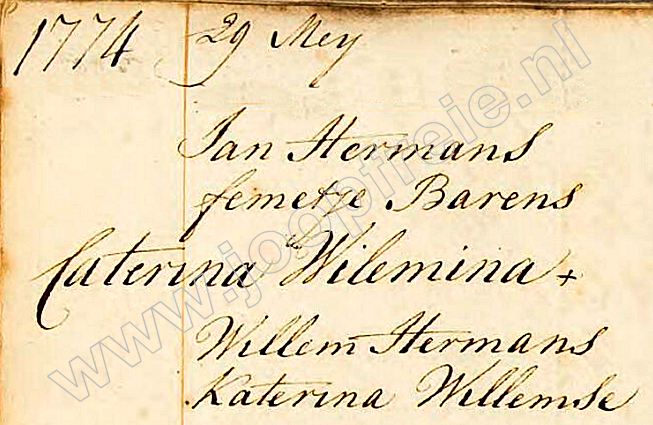 1774 29 Mey
Jan Hermans
femetje Barens
Caterina Wilemina +
Willem Hermans
Katerina Willemse
www.jooptreie.nl